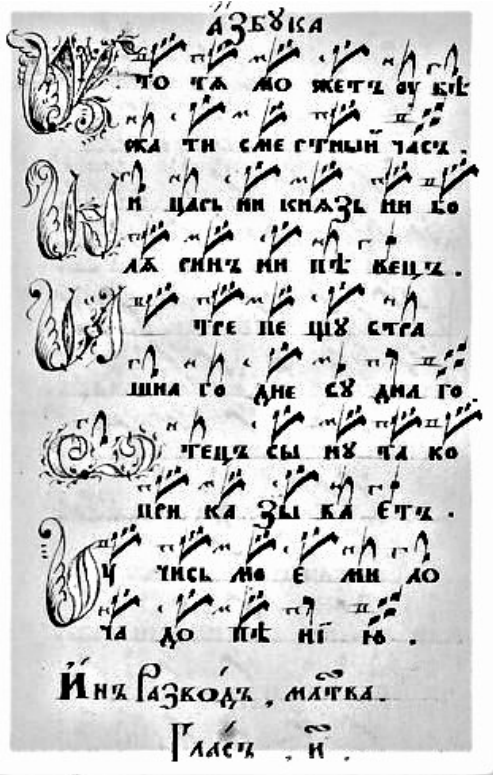 АЗБꙊКА
К ТО ТѦ МО ЖЕТЪ ОУ БѢ
ЖА ТИ СМЕ РТНЫЙ ЧАСЪ .
Н И ЦАРЬ НИ КНЯЗЬ НИ БО
ЛѦ РИНЪ НИ ПѢ ВЕЦЪ .
ТРЕ ПЕ ЩꙊ СТРА
ШНА ГО ДНЕ СꙊ ДНА ГО
Ѻ ТЕЦЪ СЫ НꙊ ТА КО
ПРИ КА ЗЫ ВА ЕТЪ .
У ЧИСЬ МО Е МИ ЛО
ЧА ДО ПѢ НЇ Ю .
Инъ Развѡдъ , мл҃тва .
Гласъ , и҃ .